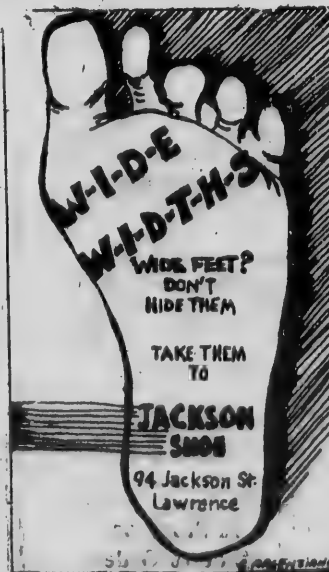 W-I-D-E
W-I-D-T-H-S
WIDE FEET?
DON'T
HIDE THEM
TAKE THEM
TO
JACKSON
SHOE
94 Jackson St.
Lawrence